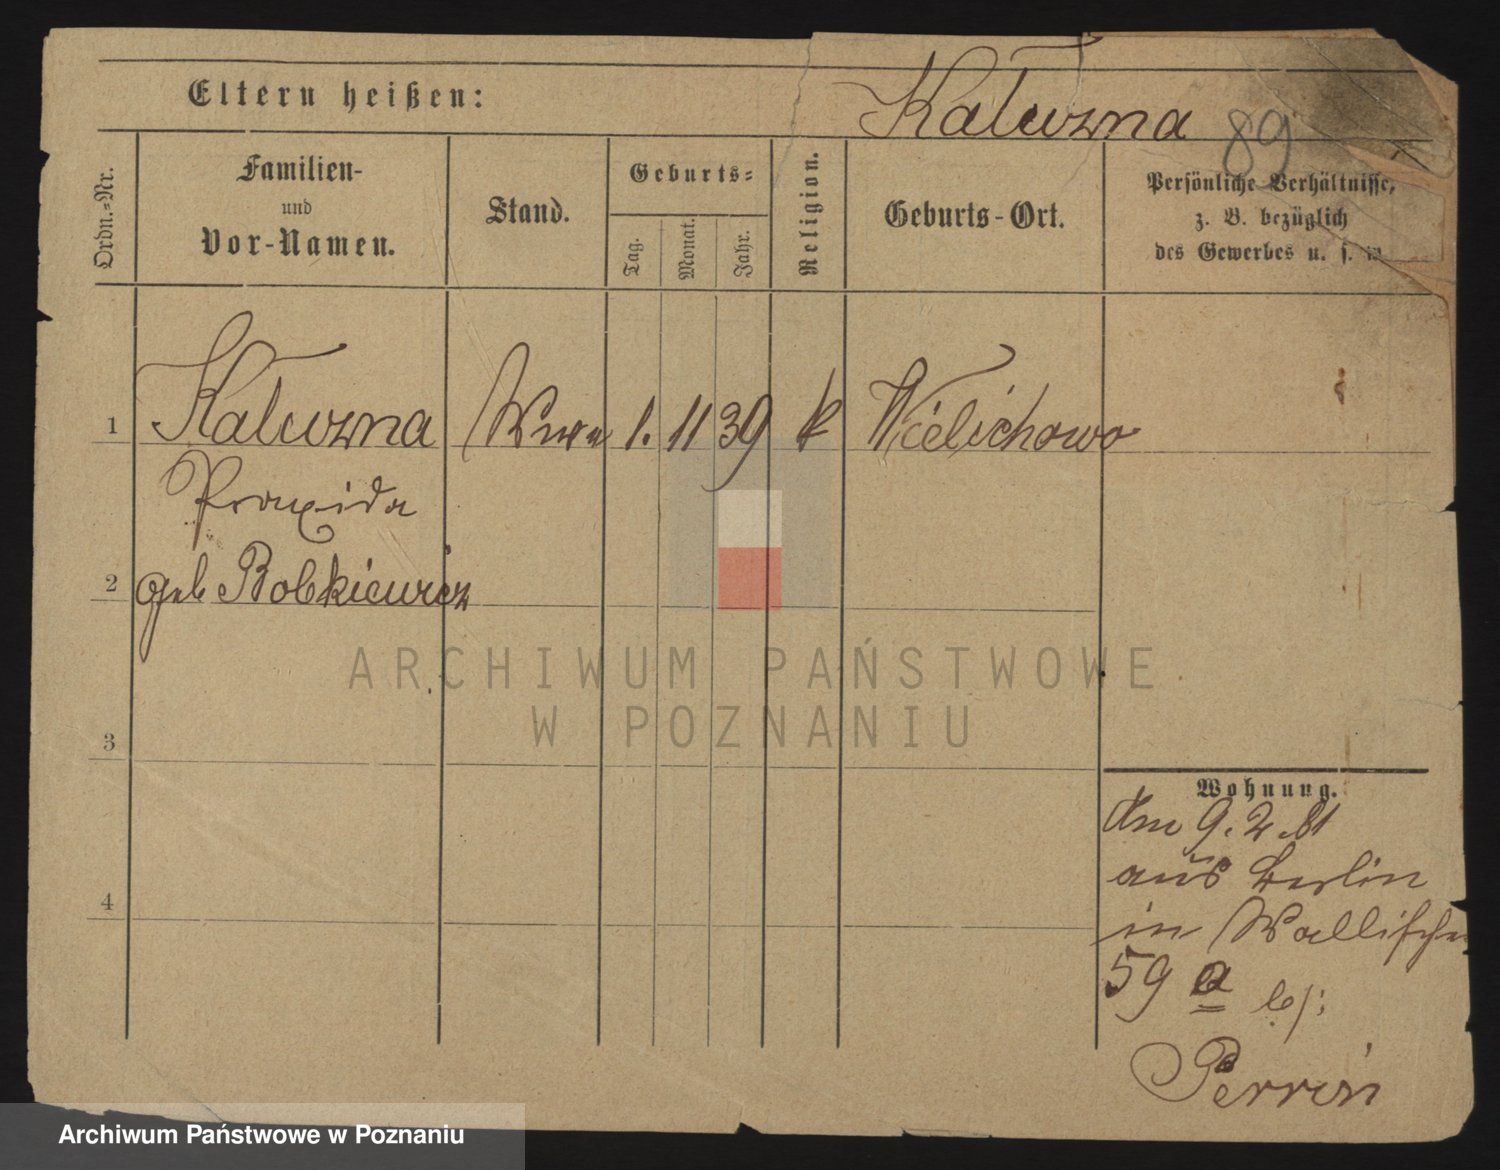 Eltern heißen:
Kaluzna
89
Ordn.-Nr.
Familien-
und
Vor-Namen.
Stand.
Geburts-
Tag.
Monat.
Jahr.
Religion.
Geburts-Ort.
Persönliche Verhältnisse,
z. B. bezüglich
des Gewerbes u. s. w.
1 Kaluzna Wwe 1. 11 39 k Wielichowo
Praxida
2 geb Bobkiewicz
3
4
Wohnung.
Am 9. 2. 81
aus Berlin
in Wallische
59 a b/:
ARCHIWUM PAŃSTWOWE
W POZNANIU
Archiwum Państwowe w Poznaniu